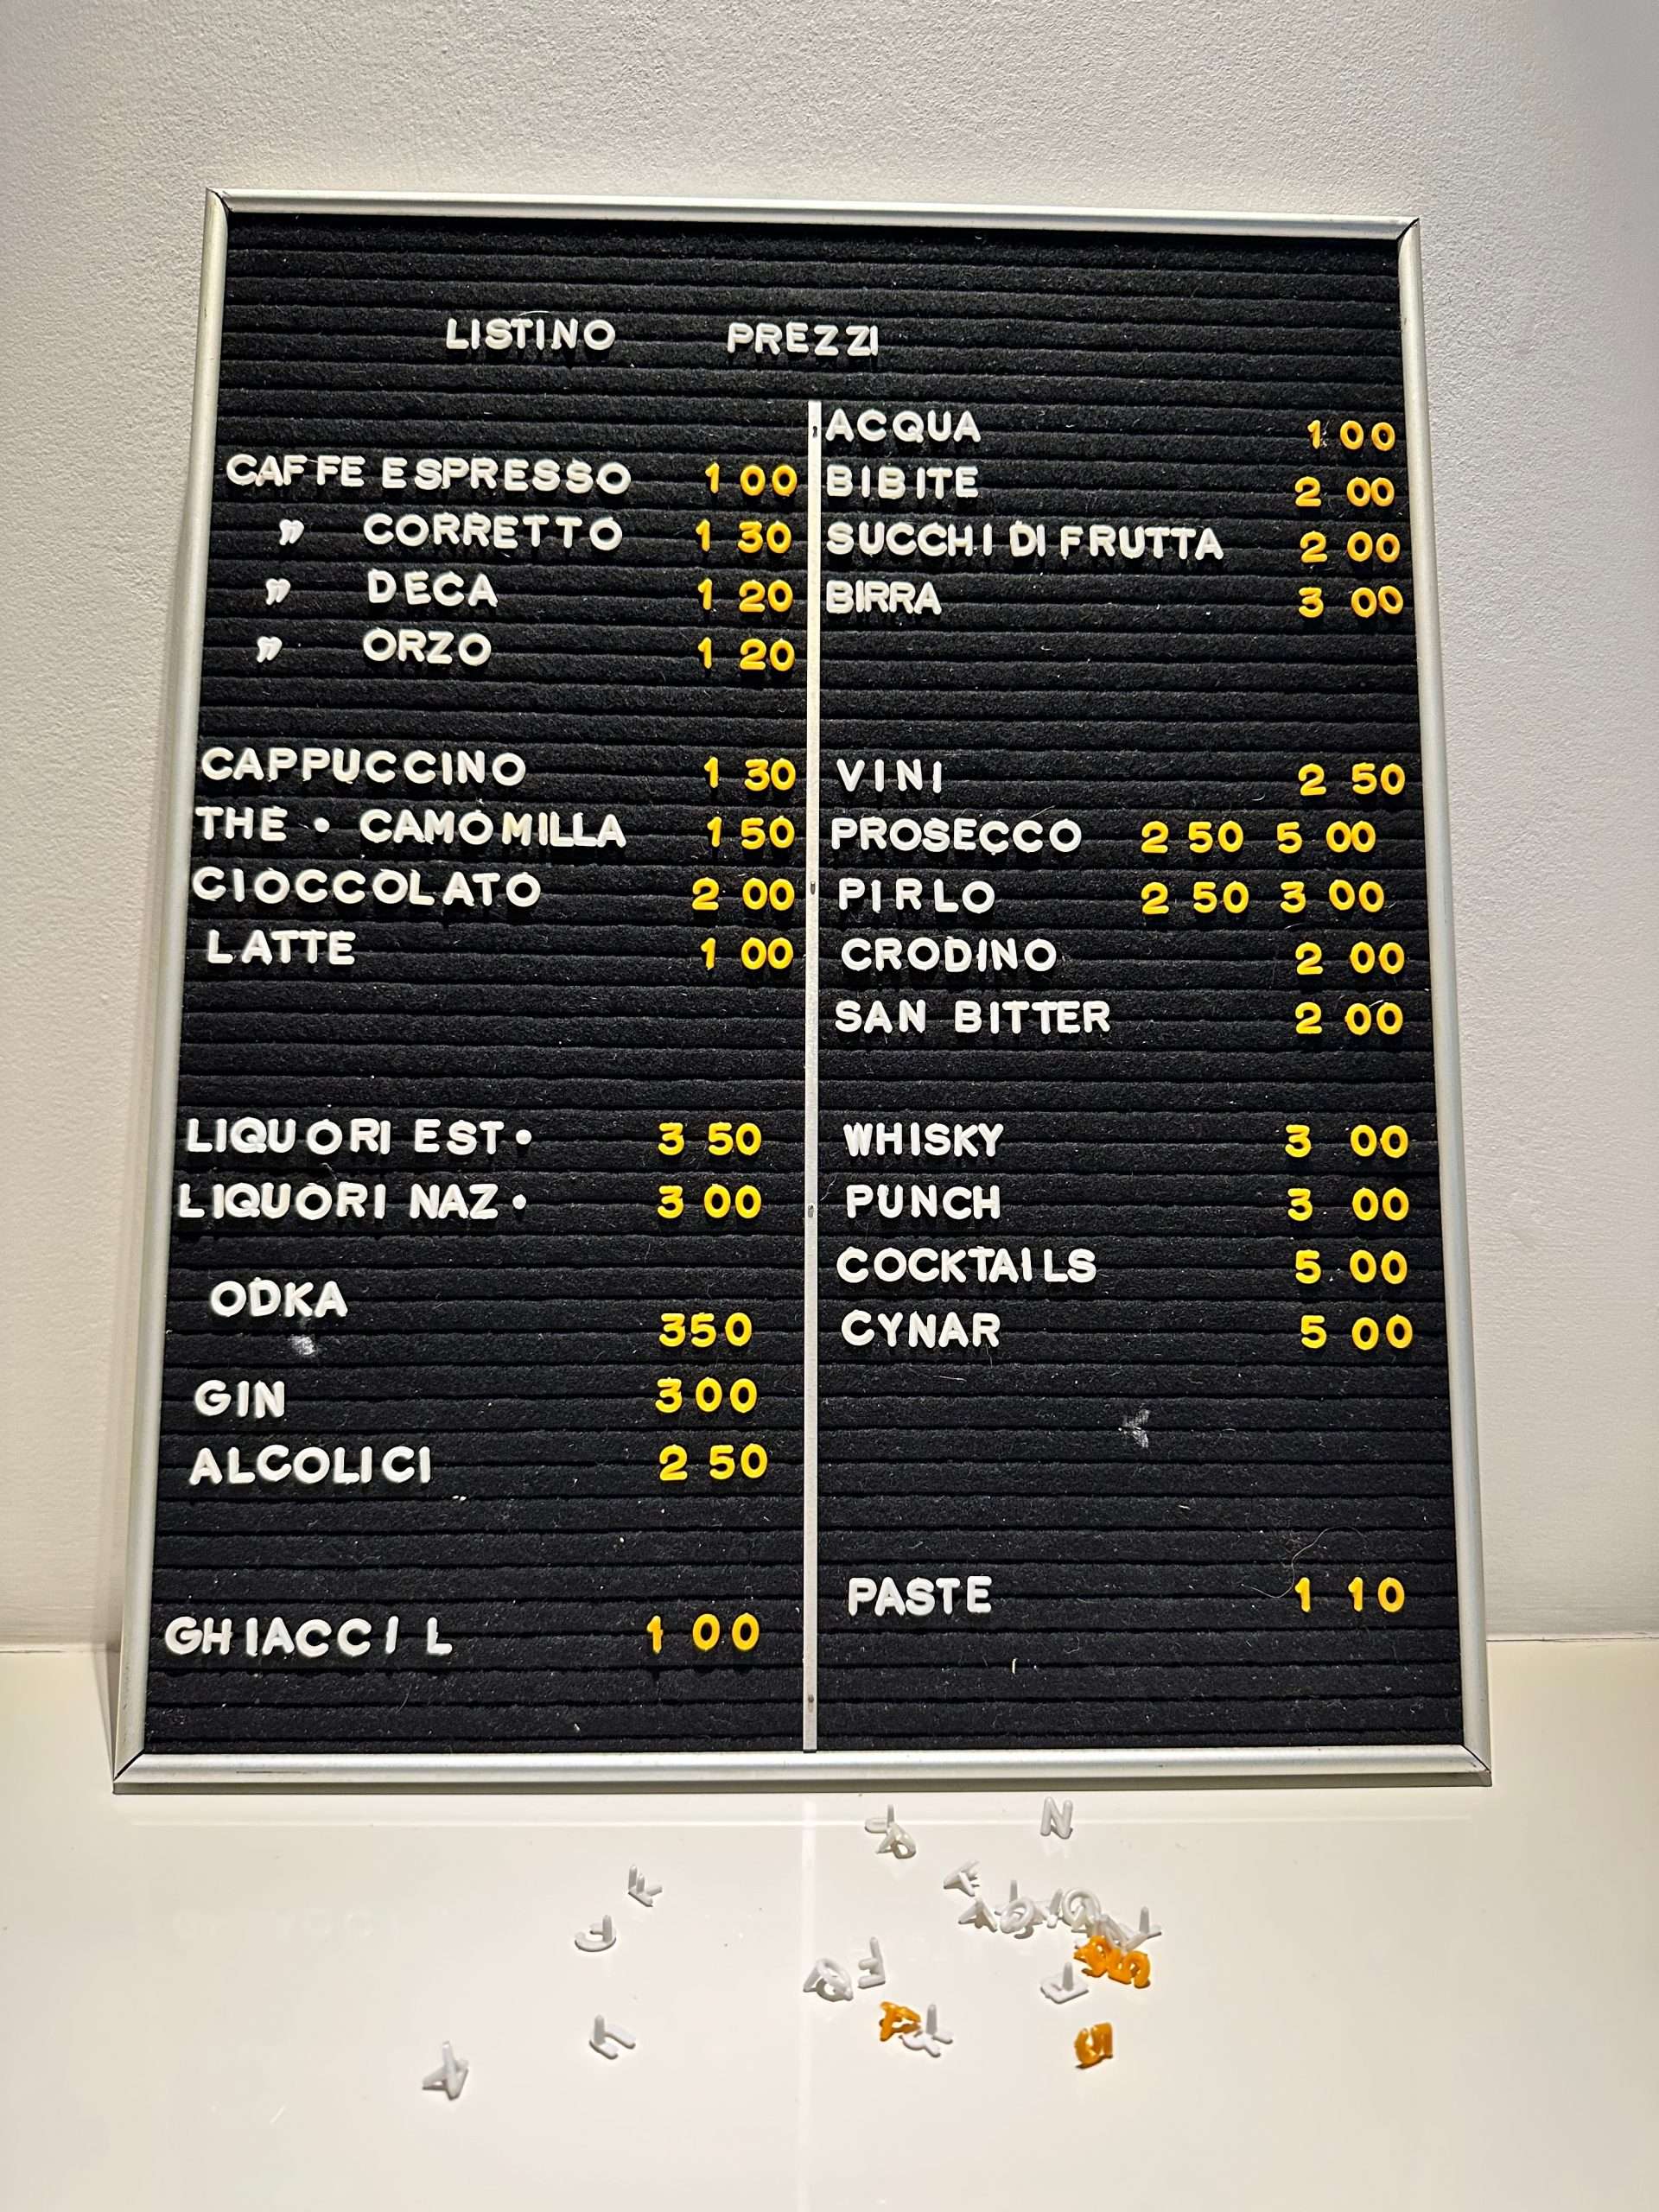 LISTINO PREZZI
CAFFE ESPRESSO 1 00
" CORRETTO 1 30
" DECA 1 20
" ORZO 1 20
CAPPUCCINO 1 30
THE • CAMOMILLA 1 50
CIOCCOLATO 2 00
LATTE 1 00
LIQUORI EST• 3 50
LIQUORI NAZ• 3 00
ODKA 350
GIN 300
ALCOLICI 2 50
GHIACCI L 1 00
ACQUA 1 00
BIBITE 2 00
SUCCHI DI FRUTTA 2 00
BIRRA 3 00
VINI 2 50
PROSECCO 2 50 5 00
PIRLO 2 50 3 00
CRODINO 2 00
SAN BITTER 2 00
WHISKY 3 00
PUNCH 3 00
COCKTAILS 5 00
CYNAR 5 00
PASTE 1 10